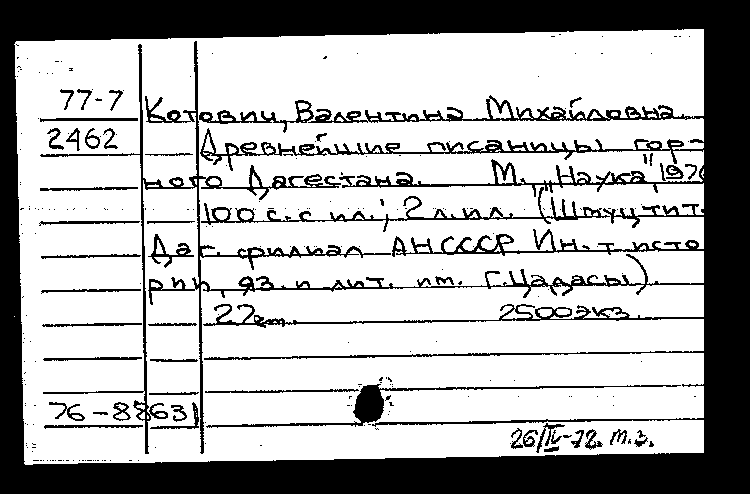 77-7 Котович, Валентина Михайловна.
2462 Древнейшие писаницы гор-
ного Дагестана. М., "Наука", 197
100 с. с ил.; 2 л. ил. (Шмуцтит.
Даг. филиал АН СССР. Ин-т исто
рии, яз. и лит. им. Г. Цадасы).
22 см. 2500 экз.
76-88631
26/IV-72. т.з.